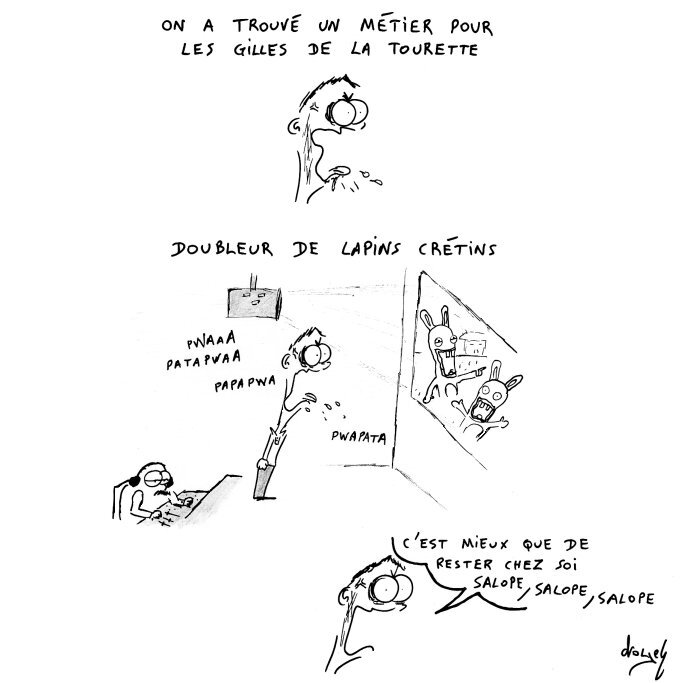 ON A TROUVÉ UN MÉTIER POUR
LES GILLES DE LA TOURETTE
DOUBLEUR DE LAPINS CRÉTINS
PWAAA
PATAPWAA
PAPAPWA
PWAPATA
C'EST MIEUX QUE DE
RESTER CHEZ SOI
SALOPE, SALOPE, SALOPE